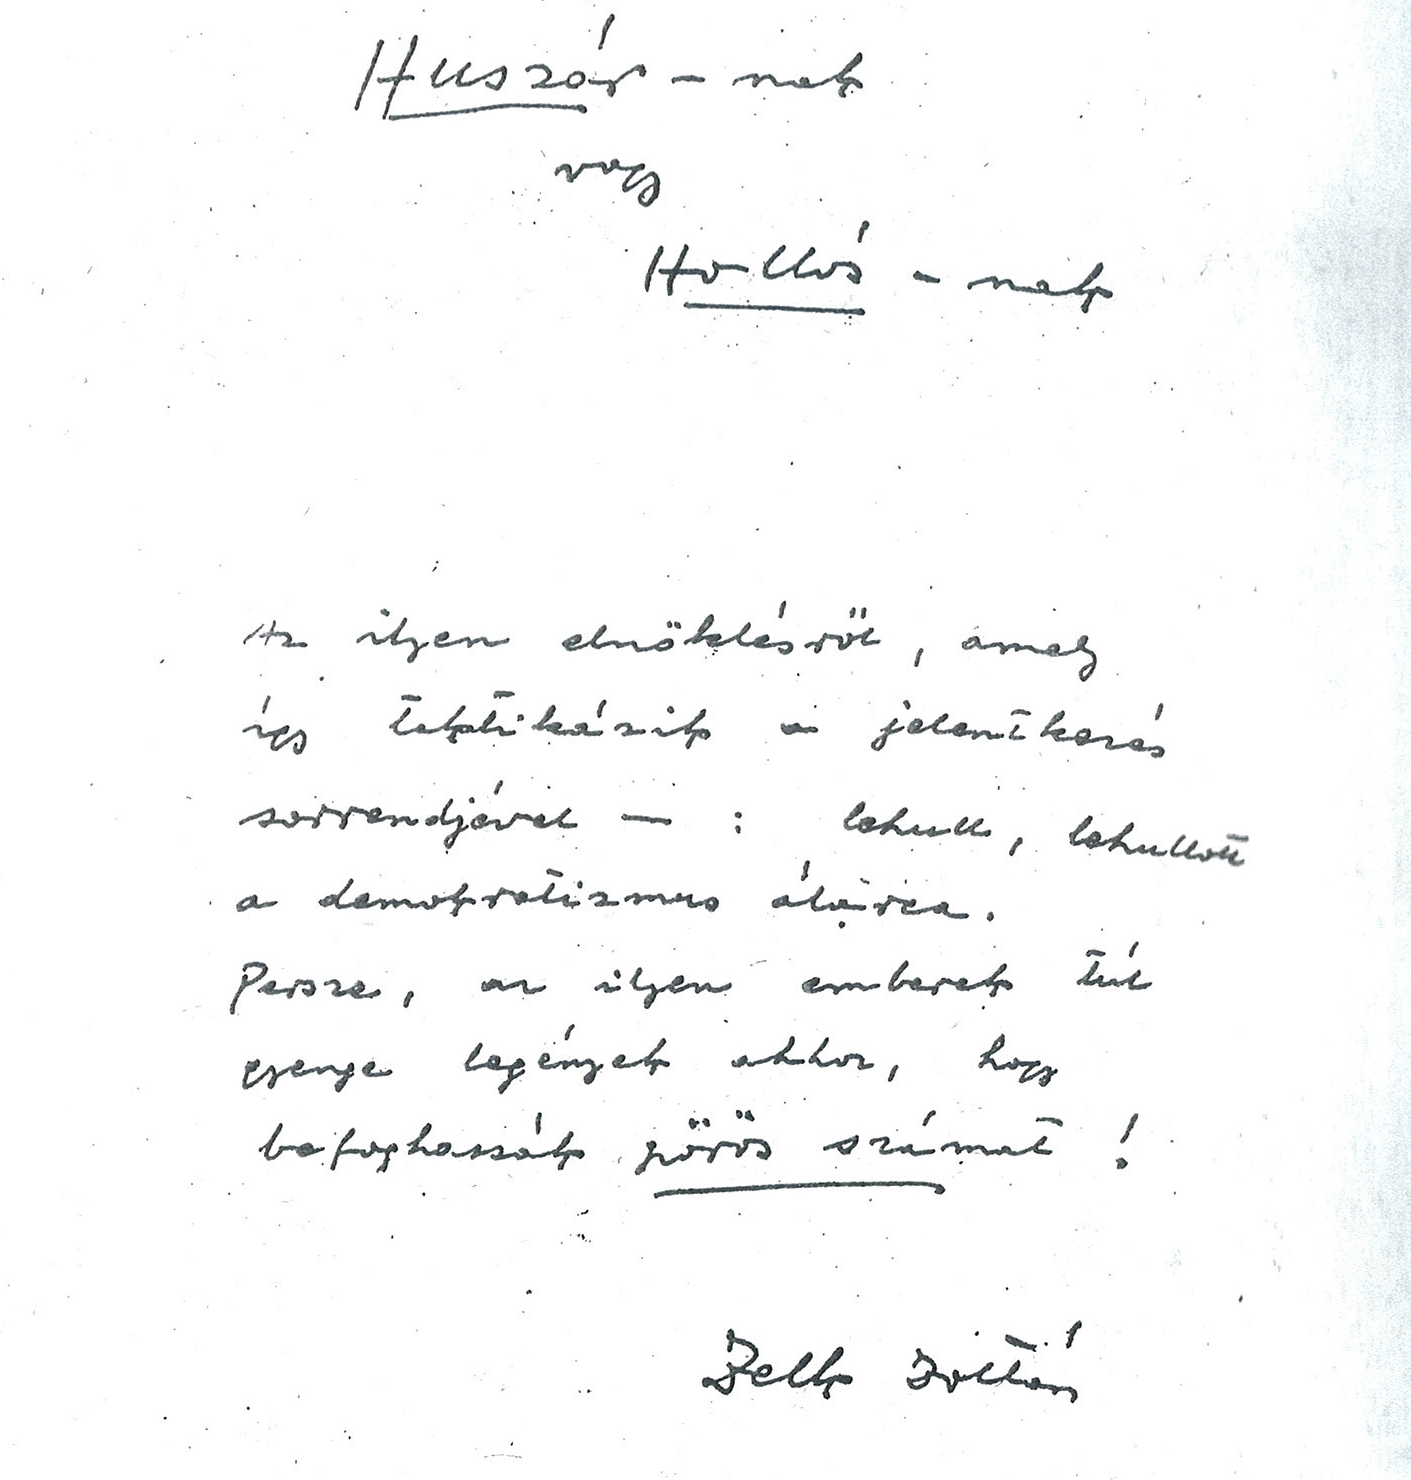 Huszár - nak
vagy
Hollós - nak
Az ilyen elnöklésről, amely
így taktikázik a jelentkezés
sorrendjével — : lehull, lehullott
a demokratizmus álarca.
Persze, az ilyen emberek túl
gyenge legények ahhoz, hogy
befoghassák pörös számat !
Zelk Zoltán